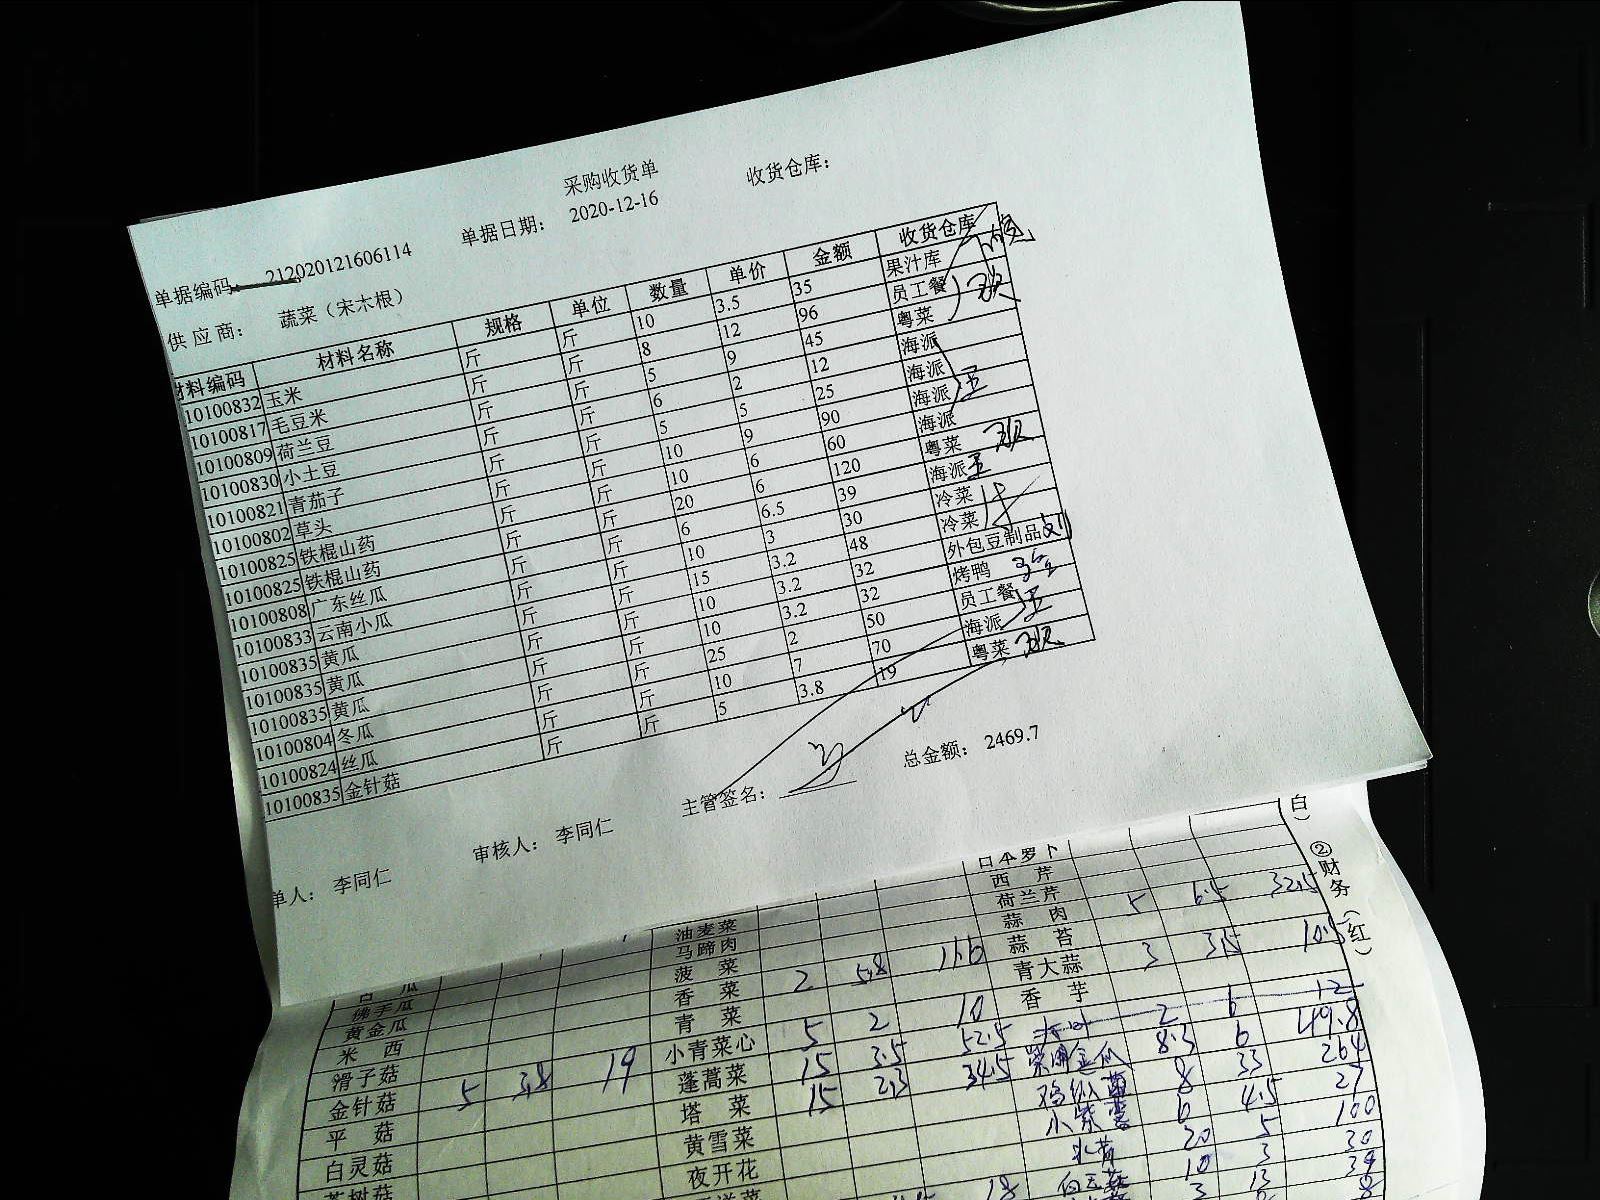 采购收货单
单据编码: 212020121606114 单据日期: 2020-12-16 收货仓库:
供应商: 蔬菜（宋木根）
材料编码 材料名称 规格 单位 数量 单价 金额 收货仓库
10100832 玉米 斤 斤 10 3.5 35 果汁库
10100817 毛豆米 斤 斤 8 12 96 员工餐
10100809 荷兰豆 斤 斤 5 9 45 粤菜
10100830 小土豆 斤 斤 6 2 12 海派
10100821 青茄子 斤 斤 5 5 25 海派
10100802 草头 斤 斤 10 9 90 海派
10100825 铁棍山药 斤 斤 10 6 60 海派
10100825 铁棍山药 斤 斤 20 6 120 粤菜
10100808 广东丝瓜 斤 斤 6 6.5 39 海派
10100833 云南小瓜 斤 斤 10 3 30 冷菜
10100835 黄瓜 斤 斤 15 3.2 48 冷菜
10100835 黄瓜 斤 斤 10 3.2 32 外包豆制品
10100835 黄瓜 斤 斤 10 3.2 32 烤鸭
10100804 冬瓜 斤 斤 25 2 50 员工餐
10100824 丝瓜 斤 斤 10 7 70 海派
10100835 金针菇 斤 斤 5 3.8 19 粤菜
单人: 李同仁 审核人: 李同仁 主管签名: 总金额: 2469.7
白） ②财务（红）
日本萝卜
西芹
荷兰芹 5 6.5 32.5
油麦菜 蒜肉
马蹄肉 蒜苔 3 3.5 10.5
菠菜 2 5.8 11.6 青大蒜
佛手瓜 香菜 香芋
黄金瓜 青菜 5 2 10 2 6 12
米西 小青菜心 15 3.5 52.5 8.3 6 49.8
滑子菇 蓬蒿菜 15 2.3 34.5 8 33 264
金针菇 5 3.8 19 塔菜 6 4.5 27
平菇 黄雪菜 20 5 100
白灵菇 夜开花 10 3 30
茶树菇 18 3 13 39